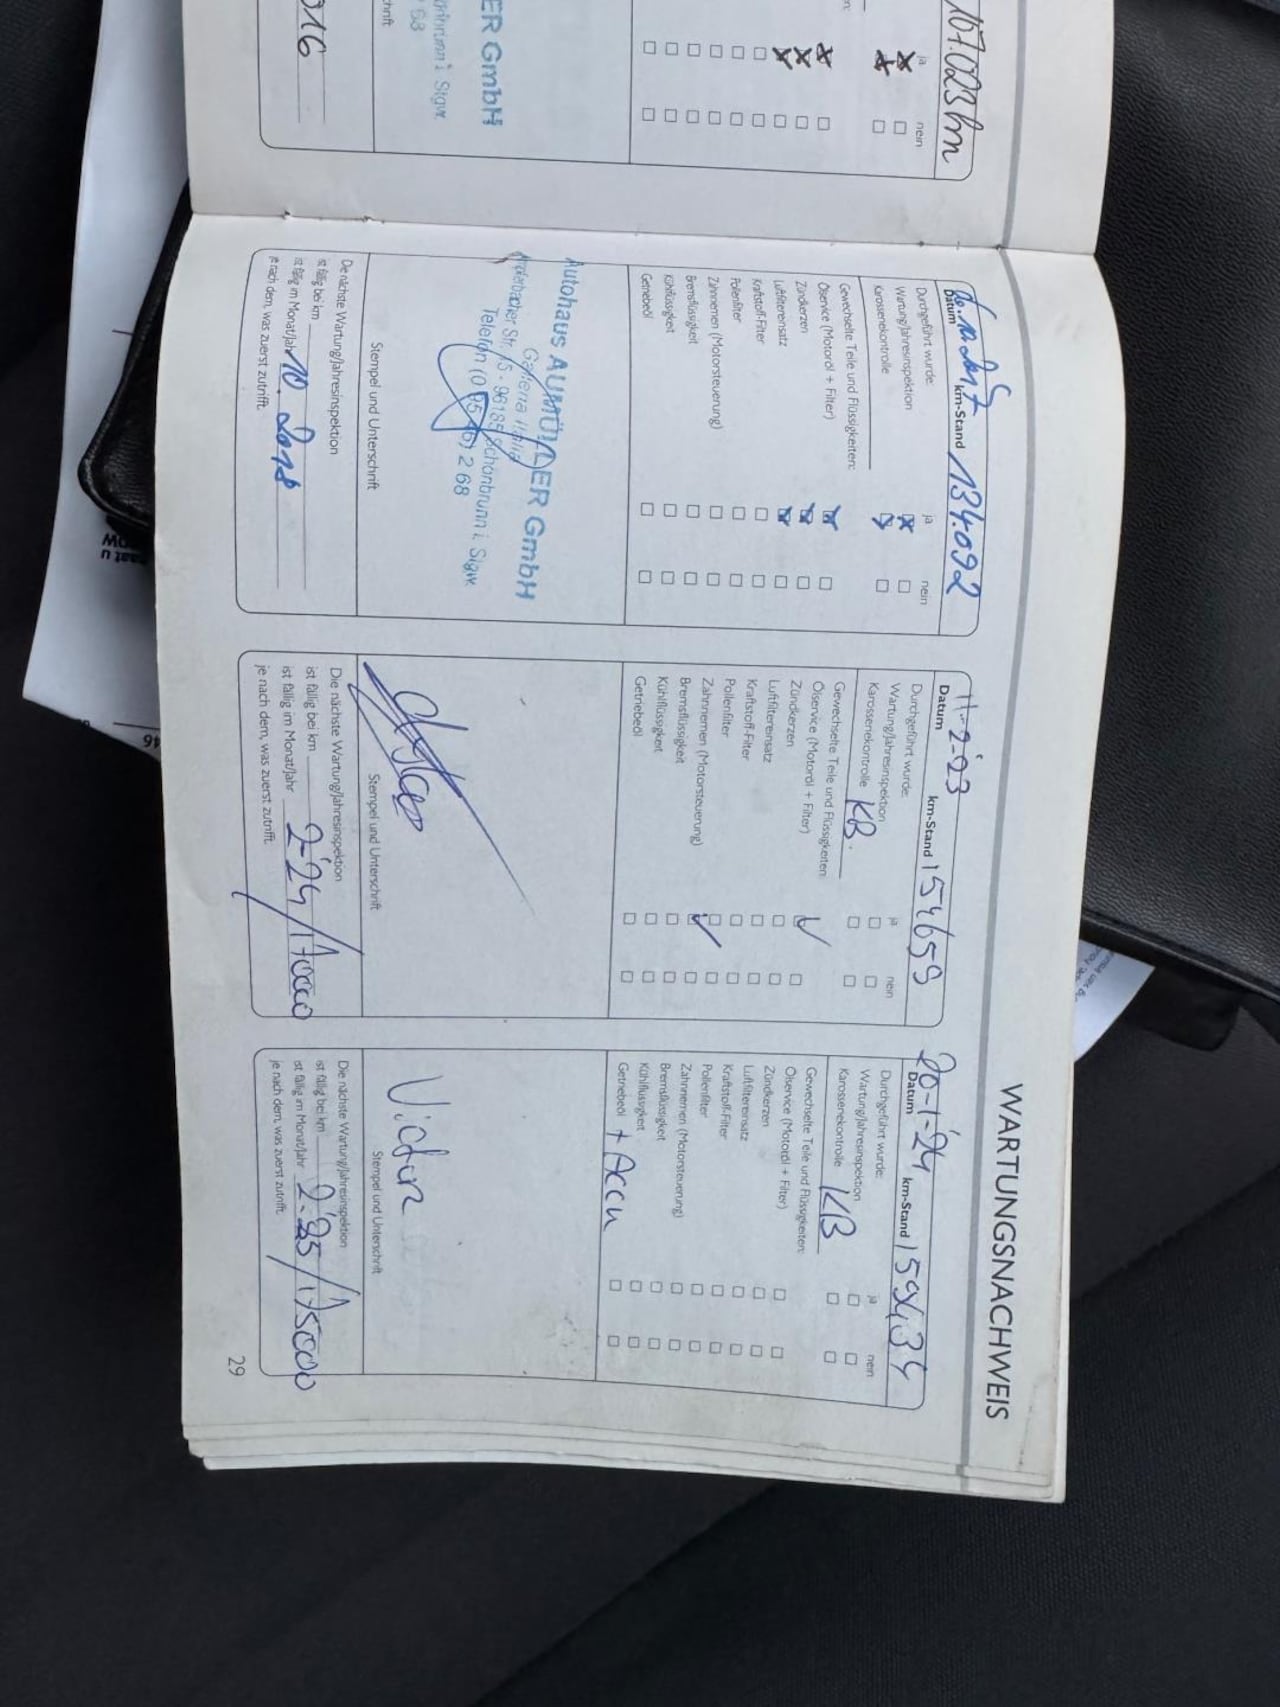 WARTUNGSNACHWEIS
107.023 km
ja nein
ER GmbH
hönbrunn i. Stgw.
68
hrift
016
Datum km-Stand 134.092
Durchgeführt wurde: ja nein
Wartung/Jahresinspektion
Karosseriekontrolle
Gewechselte Teile und Flüssigkeiten:
Ölservice (Motoröl + Filter)
Zündkerzen
Luftfiltereinsatz
Kraftstoff-Filter
Pollenfilter
Zahnriemen (Motorsteuerung)
Bremsflüssigkeit
Kühlflüssigkeit
Getriebeöl
Autohaus AUMÜLLER GmbH
Schönbrunn i. Stgw.
Telefon (0 95 46) 2 68
Stempel und Unterschrift
Die nächste Wartung/Jahresinspektion
ist fällig bei km
ist fällig im Monat/Jahr 10. 2018
je nach dem, was zuerst zutrifft.
11-2-'23 154659
Datum km-Stand
Durchgeführt wurde: ja nein
Wartung/Jahresinspektion
Karosseriekontrolle KB.
Gewechselte Teile und Flüssigkeiten:
Ölservice (Motoröl + Filter)
Zündkerzen
Luftfiltereinsatz
Kraftstoff-Filter
Pollenfilter
Zahnriemen (Motorsteuerung)
Bremsflüssigkeit
Kühlflüssigkeit
Getriebeöl
Stempel und Unterschrift
Die nächste Wartung/Jahresinspektion
ist fällig bei km
ist fällig im Monat/Jahr 2-'24/170000
je nach dem, was zuerst zutrifft.
20-1-'24 159434
Datum km-Stand
Durchgeführt wurde: ja nein
Wartung/Jahresinspektion
Karosseriekontrolle KB
Gewechselte Teile und Flüssigkeiten:
Ölservice (Motoröl + Filter)
Zündkerzen
Luftfiltereinsatz
Kraftstoff-Filter
Pollenfilter
Zahnriemen (Motorsteuerung)
Bremsflüssigkeit
Kühlflüssigkeit
Getriebeöl + Accu
Stempel und Unterschrift
Die nächste Wartung/Jahresinspektion
ist fällig bei km
ist fällig im Monat/Jahr 2-'25/175000
je nach dem, was zuerst zutrifft.
29